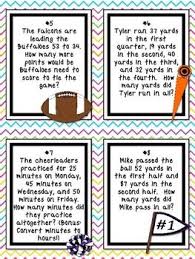 #5
The Falcons are
leading the
Buffaloes 53 to 34.
How many more
points would be
Buffaloes need to
score to tie the
game?
#6
Tyler ran 37 yards
in the first
quarter, 19 yards
in the second, 40
yards in the third,
and 32 yards in the
fourth. How many
yards did Tyler
run in all?
#7
The cheerleaders
practiced for 25
minutes on Monday,
45 minutes on
Wednesday, and 50
minutes on Friday.
How many minutes did
they practice
altogether? (Bonus:
Convert minutes to
hours!)
Mike passed the
ball 52 yards in
the first half and
87 yards in the
second half. How
many yards did
Mike pass in all?
#1